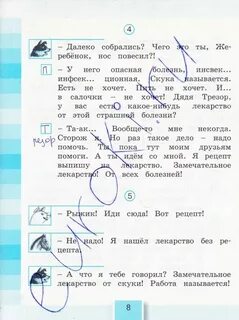 4
– Далеко собрались? Чего это ты, Же-
ребёнок, нос повесил?!
П – У него опасная болезнь, инсвек...
инфек... ционная. Скука называется.
Есть не хочет. Пить не хочет. И...
в салочки – не хочет! Дядя Трезор,
у вас есть какое-нибудь лекарство
от этой страшной болезни?
Т – Та-ак... Вообще-то мне некогда.
Сторож я. Но раз такое дело – надо
помочь. Ты пока тут моим друзьям
помоги. А ты идём со мной. Я рецепт
выпишу на лекарство. Замечательное
лекарство! От всех болезней!
5
– Рыжик! Иди сюда! Вот рецепт!
– Не надо! Я нашёл лекарство без ре-
цепта.
– А что я тебе говорил? Замечательное
лекарство от скуки! Работа называется!
8